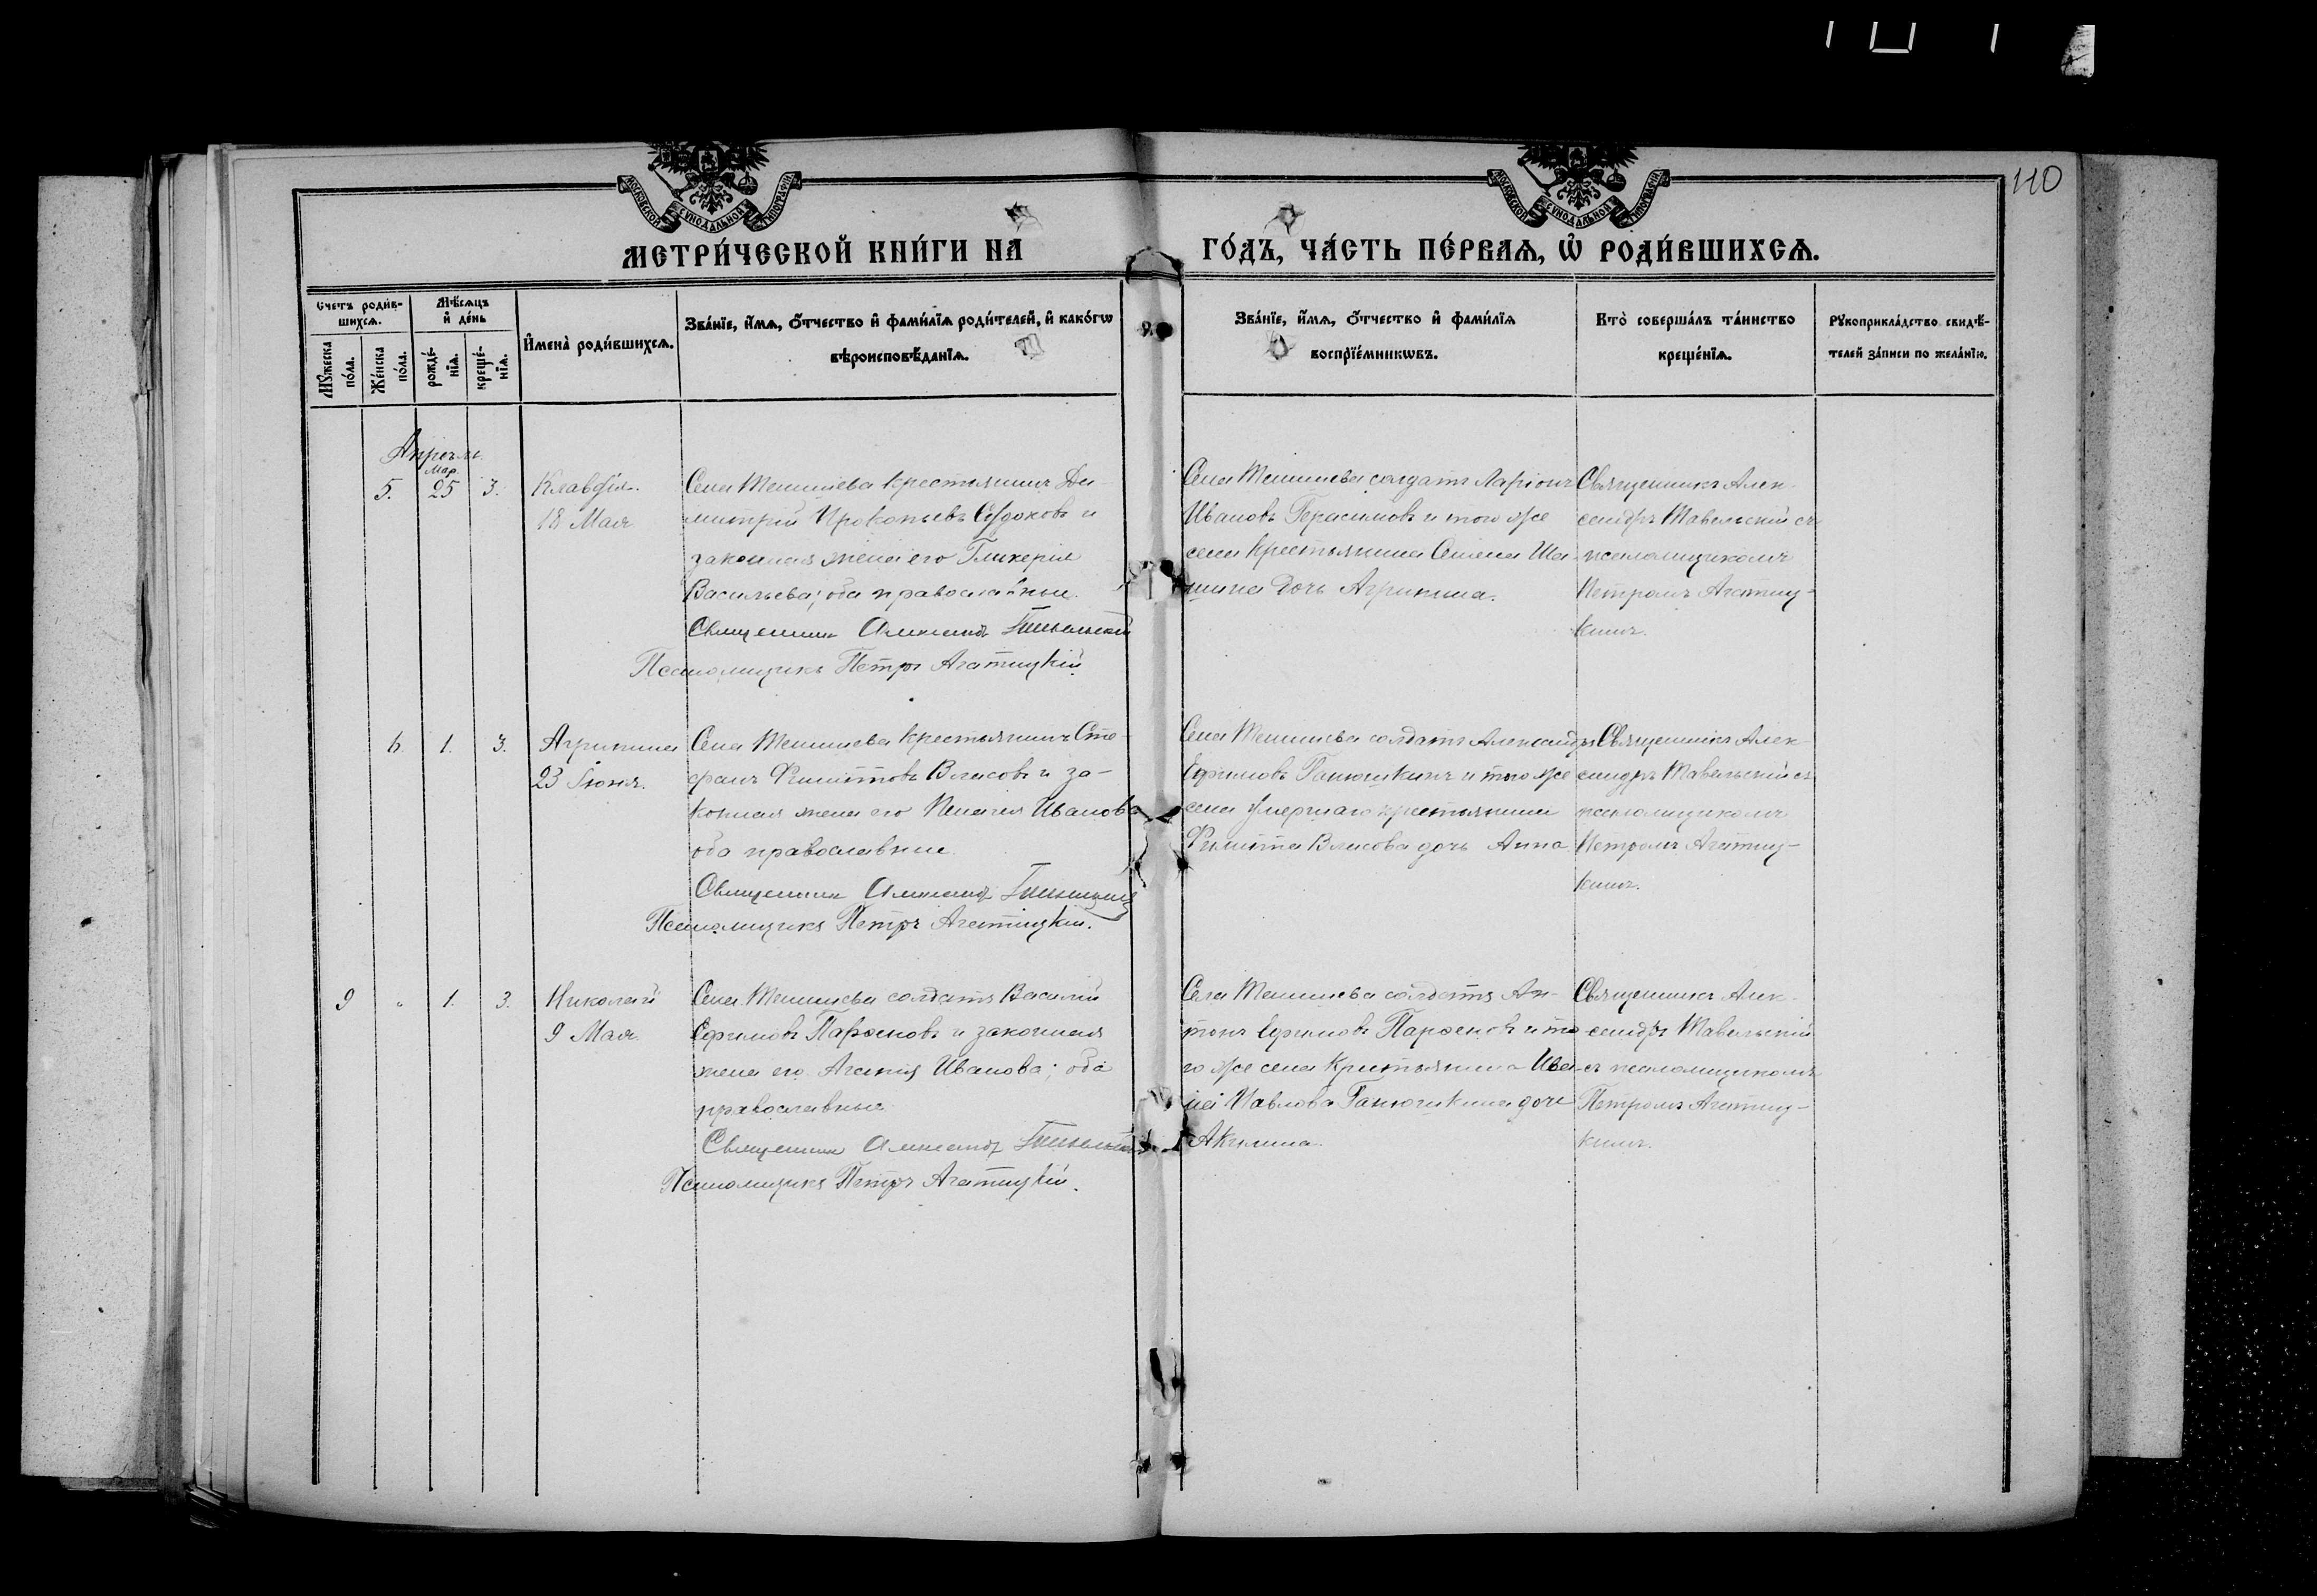 110
МОСКОВСКОЙ СУНОДАЛЬНОЙ ТИПОГРАФІИ
МОСКОВСКОЙ СУНОДАЛЬНОЙ ТИПОГРАФІИ
МЕТРИ́ЧЕСКОЙ КНИ́ГИ НА
ГО́ДЪ, ЧА́СТЬ ПЕ́РВАѦ, Ѡ҆ РОДИ́ВШИХСѦ.
Счетъ роди́в-
шихсѧ.
Мѣ́сѧцъ
и҆ де́нь
И҆мена̀ роди́вшихсѧ.
Зва́нїе, и҆́мѧ, ѻ҆́тчество и҆ фами́лїѧ роди́телей, и҆ како́гѡ
вѣроисповѣ́данїѧ.
Мꙋ́жеска
по́ла.
Же́нска
по́ла.
рожде́-
нїѧ.
креще́-
нїѧ.
Зва́нїе, и҆́мѧ, ѻ҆́тчество и҆ фами́лїѧ
воспрїе́мникѡвъ.
Кто̀ соверша́лъ та́инство
креще́нїѧ.
Рꙋкоприкла́дство свидѣ́-
телей за́писи по жела́нїю.
Апрель
Мар.
5. 25 3.
Клавдія.
18 Мая
Села крестьянинъ Ди-
митрій Прокопьевъ и
законная жена его Гликерія
Васильева; оба православные.
Священникъ Александр
Псаломщикъ Петръ Агатицкій.
Села солдатъ Ларіонъ
Ивановъ Герасимовъ и того же
села крестьянина Ша-
шина дочь Агрипина.
Священникъ Алек-
сандръ Тавельскій съ
псаломщикомъ
Петромъ Агатиц-
кимъ.
6. 1. 3.
Агрипина
23 Іюня.
Села крестьянинъ Сте-
фанъ Филиповъ Власовъ и за-
конная жена его Пелагея Иванова
оба православные
Священникъ Александр
Псаломщикъ Петръ Агатицкій.
Села солдатъ Александръ
Ефимовъ Ганюшкинъ и того же
села умершаго крестьянина
Филипа Власова дочь Анна
Священникъ Алек-
сандръ Тавельскій съ
псаломщикомъ
Петромъ Агатиц-
кимъ.
9 " 1. 3.
Николай
9 Мая.
Села солдатъ Василій
Ефимовъ Парѳеновъ и законная
жена его Агапія Иванова; оба
православные
Священникъ Александр
Псаломщикъ Петръ Агатицкій.
Села солдатъ Ан-
тонъ Ефимовъ Парѳеновъ и то-
го же села крестьянина Ива-
на Павлова Ганюшкина дочь
Акилина.
Священникъ Алек-
сандръ Тавельскій
съ псаломщикомъ
Петромъ Агатиц-
кимъ.